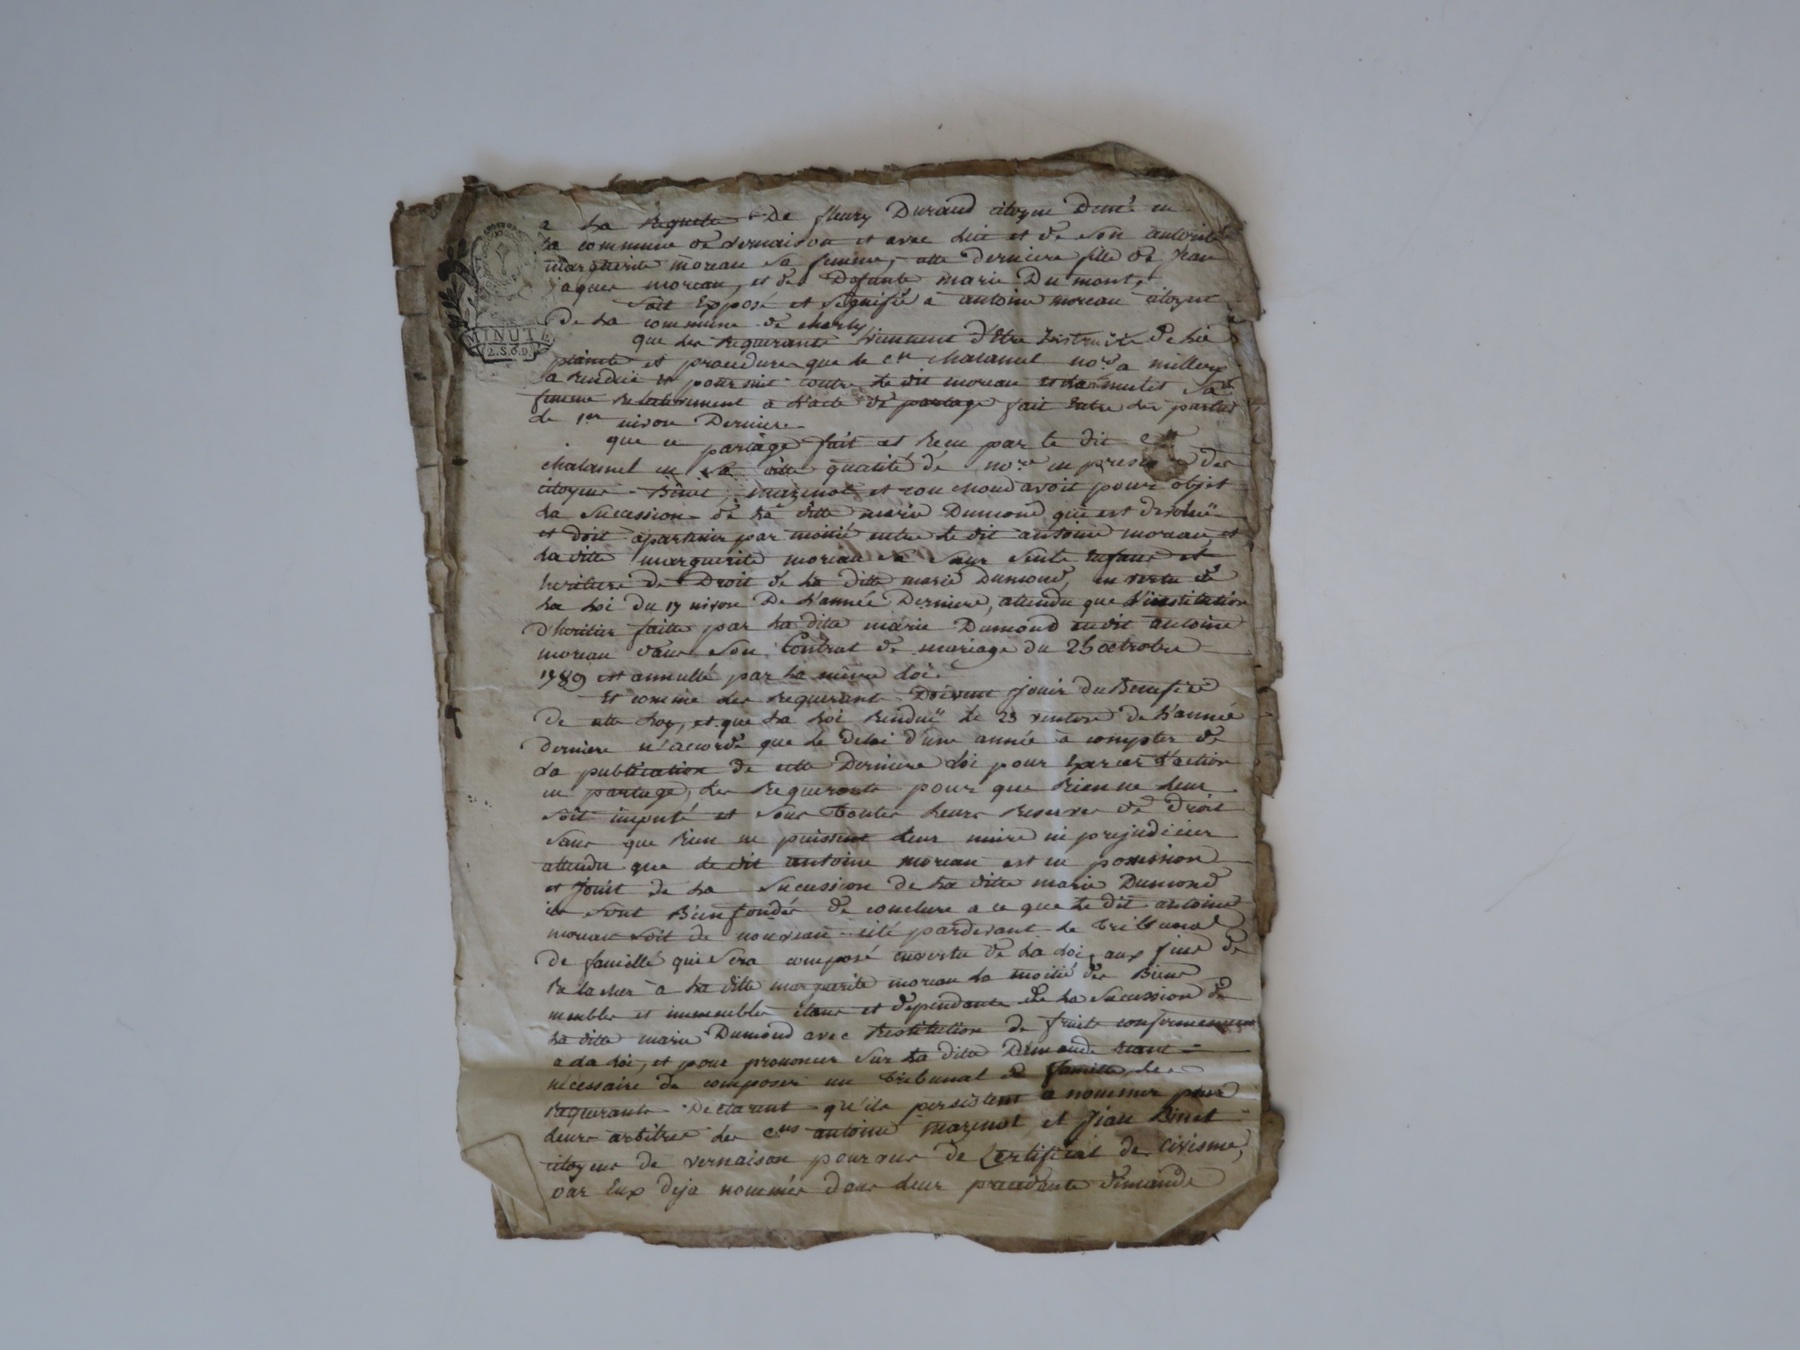 a La Requete De fleury Durand citoyen Demt en
La commune de vernaison et avec Lui et de son autorité
marguerite moreau Sa femme, cette Derniere fille de Jean
jaques moreau, et de Defunte marie Dumont,
Soit Exposé et Signifié a antoine moreau citoyen
De La commune de charly
que Les Requerants viennent d'Etre Instruits de La
plainte et procedure que le cen chalamel nore a millery
a Rendüe et poursuit contre Le dit moreau et mulet Sa
femme Relativement a L'acte de partage fait Entre Les parties
Le 1er nivose Dernier
que ce partage fait et Recu par le dit cen
chalamel en Sa ditte qualité de nore en presence des
citoyens Binet, mazenot et avoit pour objet
La Sucession de La ditte marie Dumond qui est devolüe
et doit apartenir par moitié entre Le dit antoine moreau et
La ditte marguerite moreau Sa Sœur Seuls Enfans et
heritiers de Droit de La ditte marie Dumond, en vertu de
La Loi Du 17 nivose De L'année Derniere, attendu que L'institution
D'heritier faitte par La dite marie Dumond audit antoine
moreau dans Son Contrat de mariage du 25 octobre
1789 est annullé par La même Loi.
Et comme Les Requerants Doivent jouir du Benefice
De cette Loy, et que La Loi Rendüe Le 23 ventose de L'année
derniere n'acorde que Le delai d'une année à compter de
La publication de cette Derniere Loi pour Exercer L'action
en partage, Les Requerants pour que Rien ne Leur
Soit imputé et Sous Toutes Leurs Reserves de Droit
Sans que Rien ne puissent Leur nuire ni prejudicier
attendu que Le dit antoine moreau est en possession
et Jouit de La Sucession de La ditte marie Dumond
ils Sont Bien fondés de conclure a ce que Le dit antoine
moreau Soit de nouveau cité pardevant Le Tribunal
De famille qui Sera composé en vertu de La Loi, aux fins de
Relacher à La ditte marguerite moreau La moitié des Biens
meubles et immeubles etans et dependants de La Sucession de
La ditte marie Dumond avec Restitution de fruits conformement
a La Loi, et pour prononcer Sur La ditte Demande Etant
nécessaire de composer un Tribunal de famille, Les
Requerants Declarent qu'ils persistent a nommer pour
Leurs arbitres Les cens antoine mazenot et Jean Binet
citoyens de vernaison pourvus de Certificat de Civisme,
par Eux deja nommés dans Leur precedente demande
MINUTE
2.S.6.D.